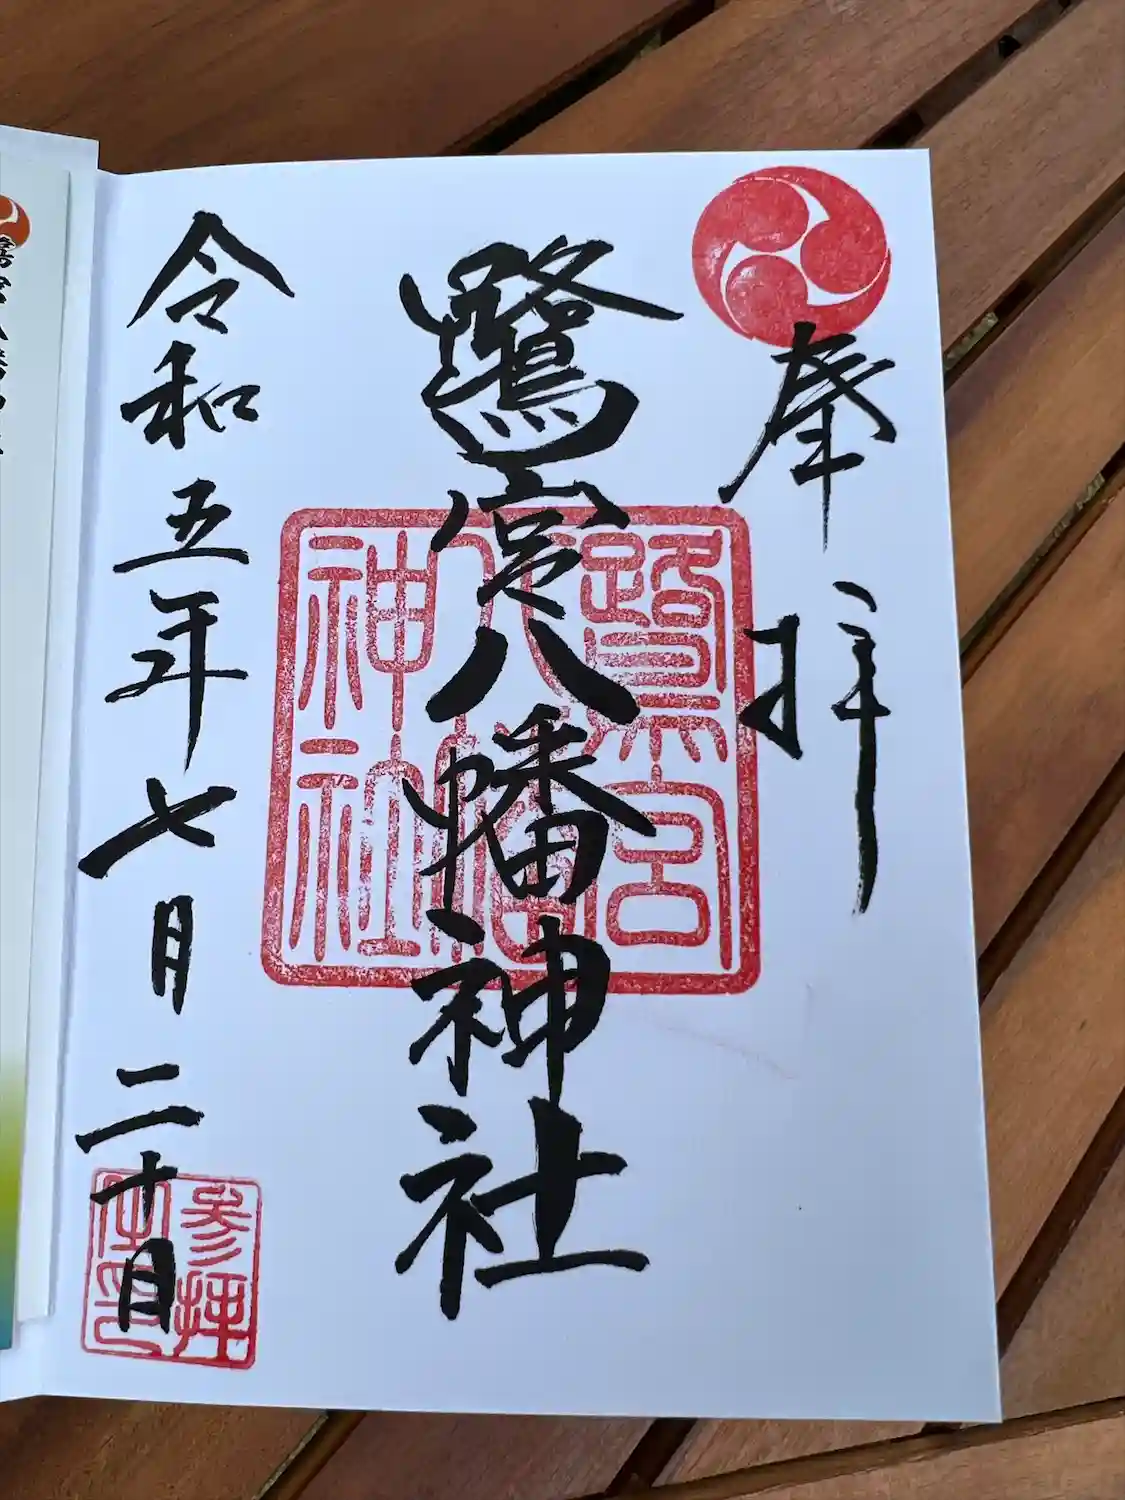 奉拝
鷺宮八幡神社
鷺宮
八幡
神社
令和五年七月二十日
参拝